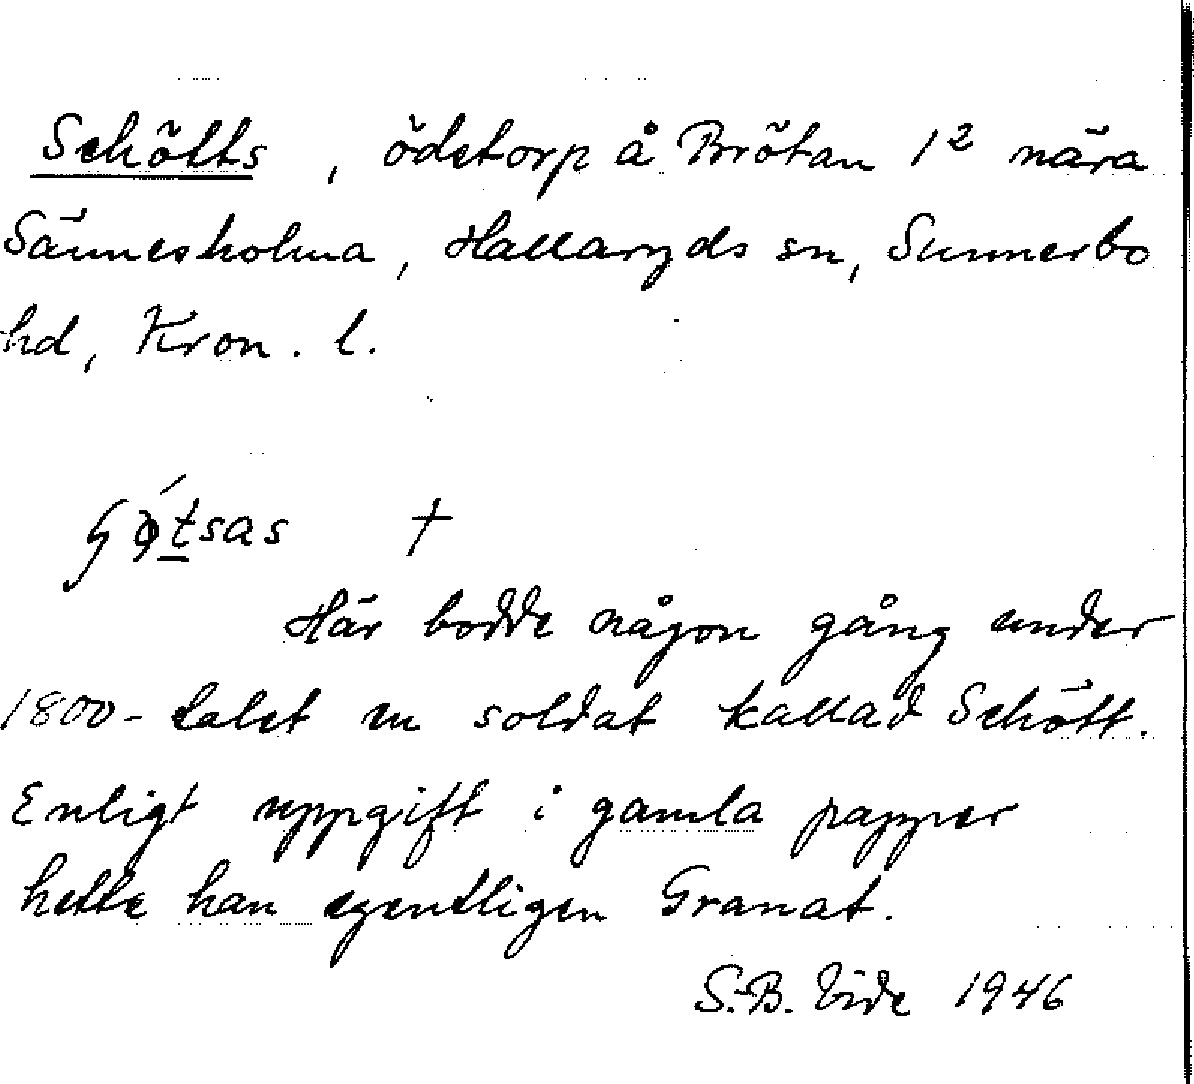 Schötts, ödetorp å Brötan 1² nära
Sännesholma, Hallaryds sn, Sunnerbo
hd, Kron. l.
+
Här bodde någon gång under
1800-talet en soldat kallad Schött.
Enligt uppgift i gamla papper
hette han egentligen Granat.
S.-B. Vide 1946